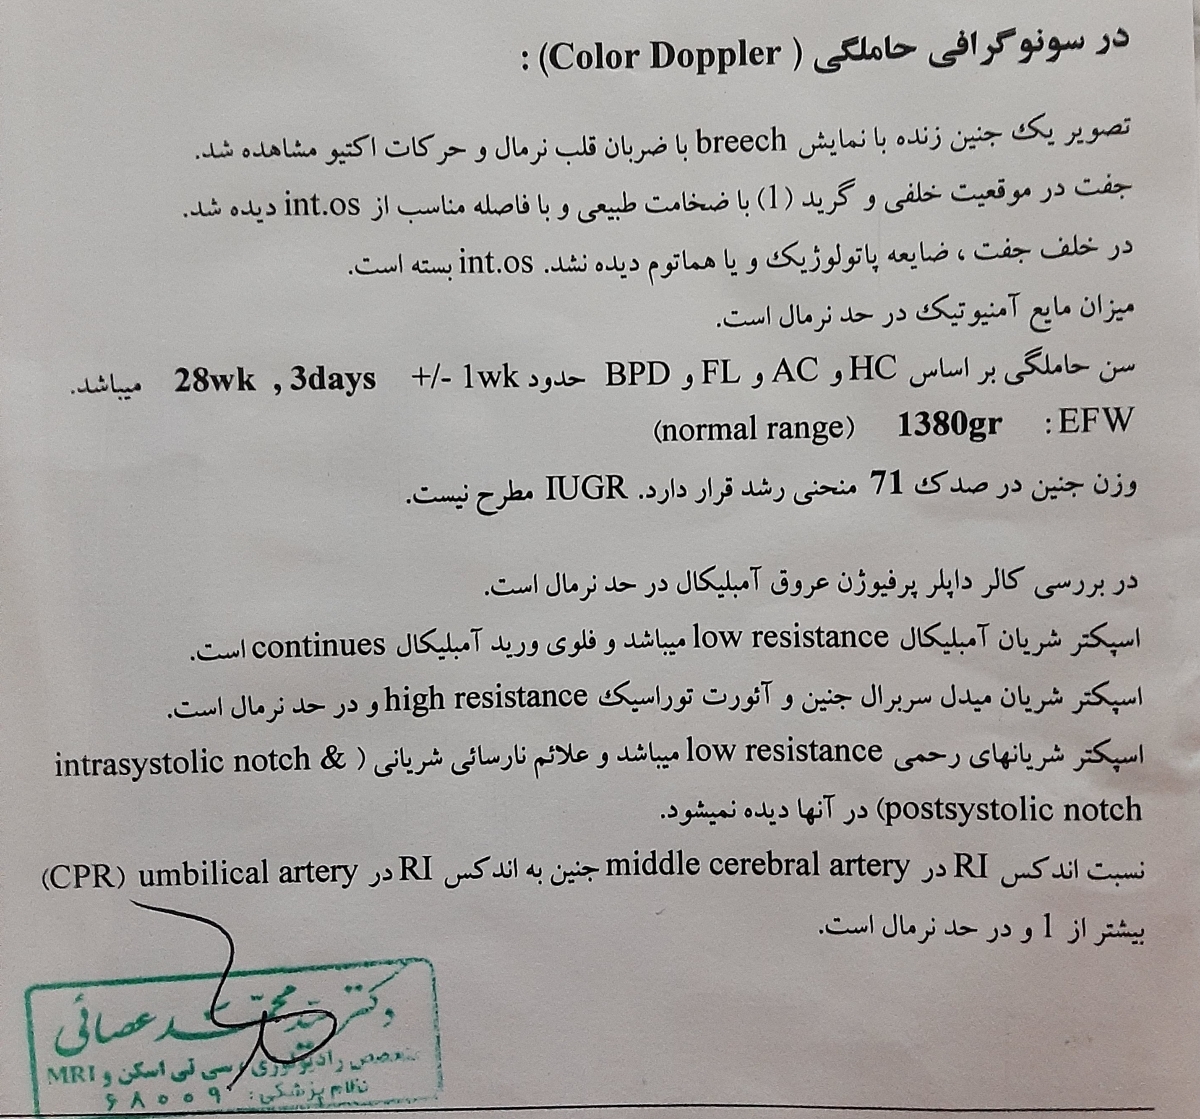 در سونوگرافی حاملگی ( Color Doppler) :
تصویر یک جنین زنده با نمایش breech با ضربان قلب نرمال و حرکات اکتیو مشاهده شد.
جفت در موقعیت خلفی و گرید (1) با ضخامت طبیعی و با فاصله مناسب از int.os دیده شد.
در خلف جفت ، ضایعه پاتولوژیک و یا هماتوم دیده نشد. int.os بسته است.
میزان مایع آمنیوتیک در حد نرمال است.
سن حاملگی بر اساس HC و AC و FL و BPD حدود 28wk , 3days +/- 1wk میباشد.
EFW : 1380gr (normal range)
وزن جنین در صدک 71 منحنی رشد قرار دارد. IUGR مطرح نیست.
در بررسی کالر داپلر پرفیوژن عروق آمبلیکال در حد نرمال است.
اسپکتر شریان آمبلیکال low resistance میباشد و فلوی ورید آمبلیکال continues است.
اسپکتر شریان میدل سربرال جنین و آئورت توراسیک high resistance و در حد نرمال است.
اسپکتر شریانهای رحمی low resistance میباشد و علائم نارسائی شریانی ( intrasystolic notch &
postsystolic notch) در آنها دیده نمیشود.
نسبت اندکس RI در middle cerebral artery جنین به اندکس RI در umbilical artery (CPR)
بیشتر از 1 و در حد نرمال است.
دکتر سید محمد عصائی
متخصص رادیولوژی ، سی تی اسکن و MRI
نظام پزشکی: ۶۸۰۰۹